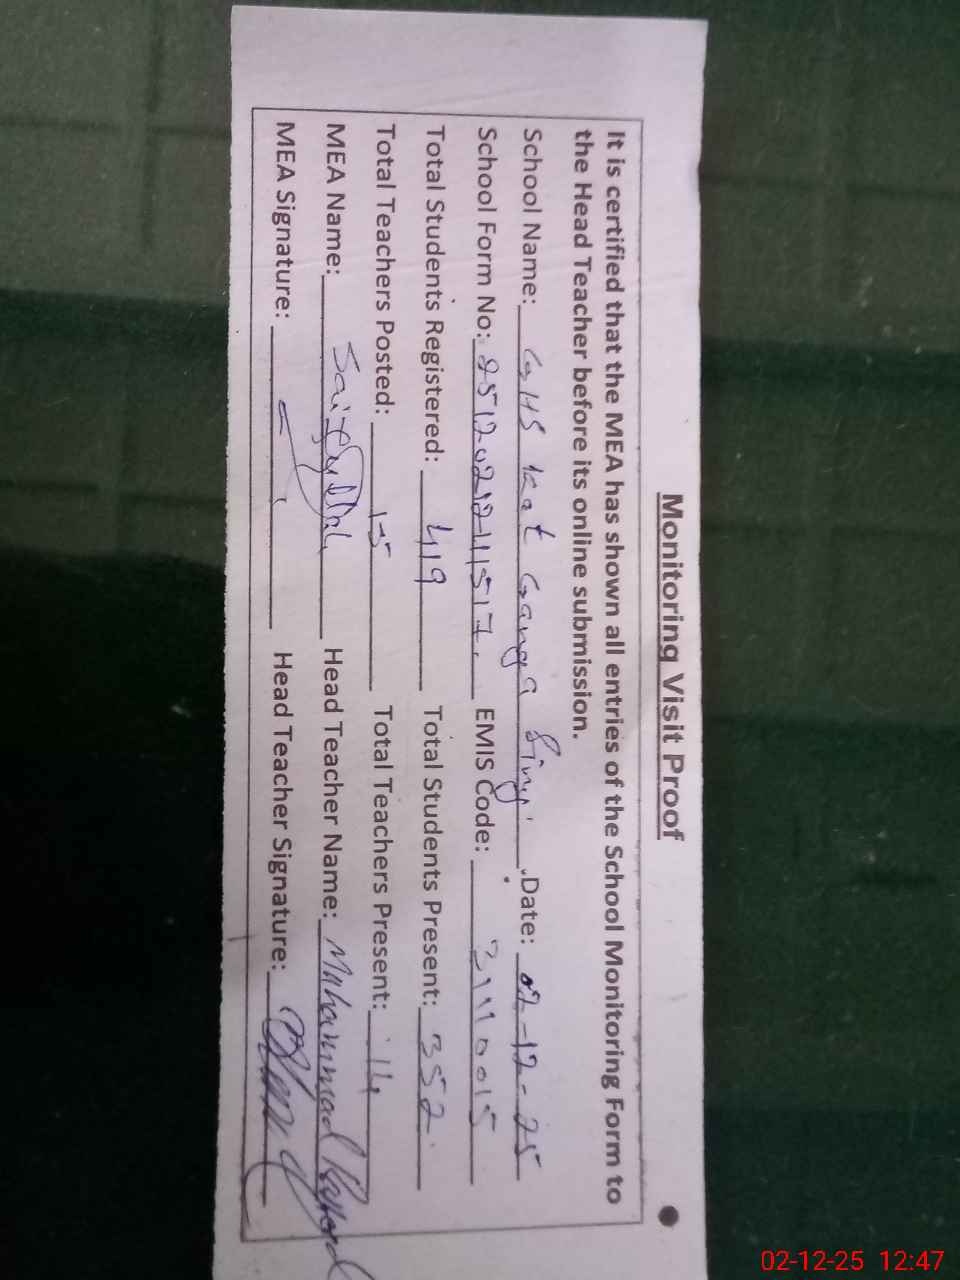 Monitoring Visit Proof
It is certified that the MEA has shown all entries of the School Monitoring Form to
the Head Teacher before its online submission.
School Name: GHS Kot Ganga Sing Date: 02-12-25
School Form No: 2512021241517 EMIS Code: 31110015
Total Students Registered: 419 Total Students Present: 352
Total Teachers Posted: 15 Total Teachers Present: 14
MEA Name: Saifullah Head Teacher Name: Muhammad
MEA Signature: Head Teacher Signature:
02-12-25 12:47